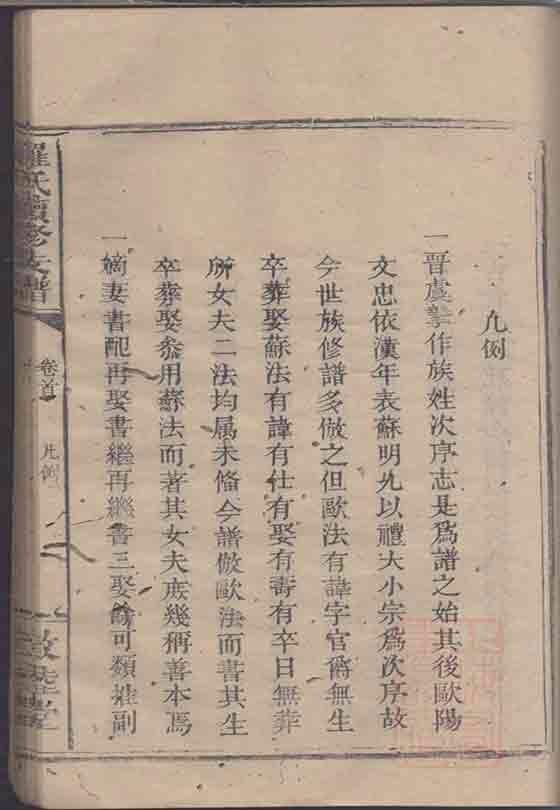 凡例
一晋虞摯作族姓次序志是爲譜之始其後歐陽
文忠依漢年表蘇明允以禮大小宗爲次序故
今世族修譜多倣之但歐法有諱字官爵無生
卒葬娶蘇法有諱有仕有娶有壽有卒日無葬
所女夫二法均属未脩今譜倣歐法而書其生
卒葬娶叅用蘇法而著其女夫庻幾稱善本焉
一嫡妻書配再娶書繼再繼書三娶餘可類推副
羅氏續修支譜
卷首
凡例
一
敦睦堂